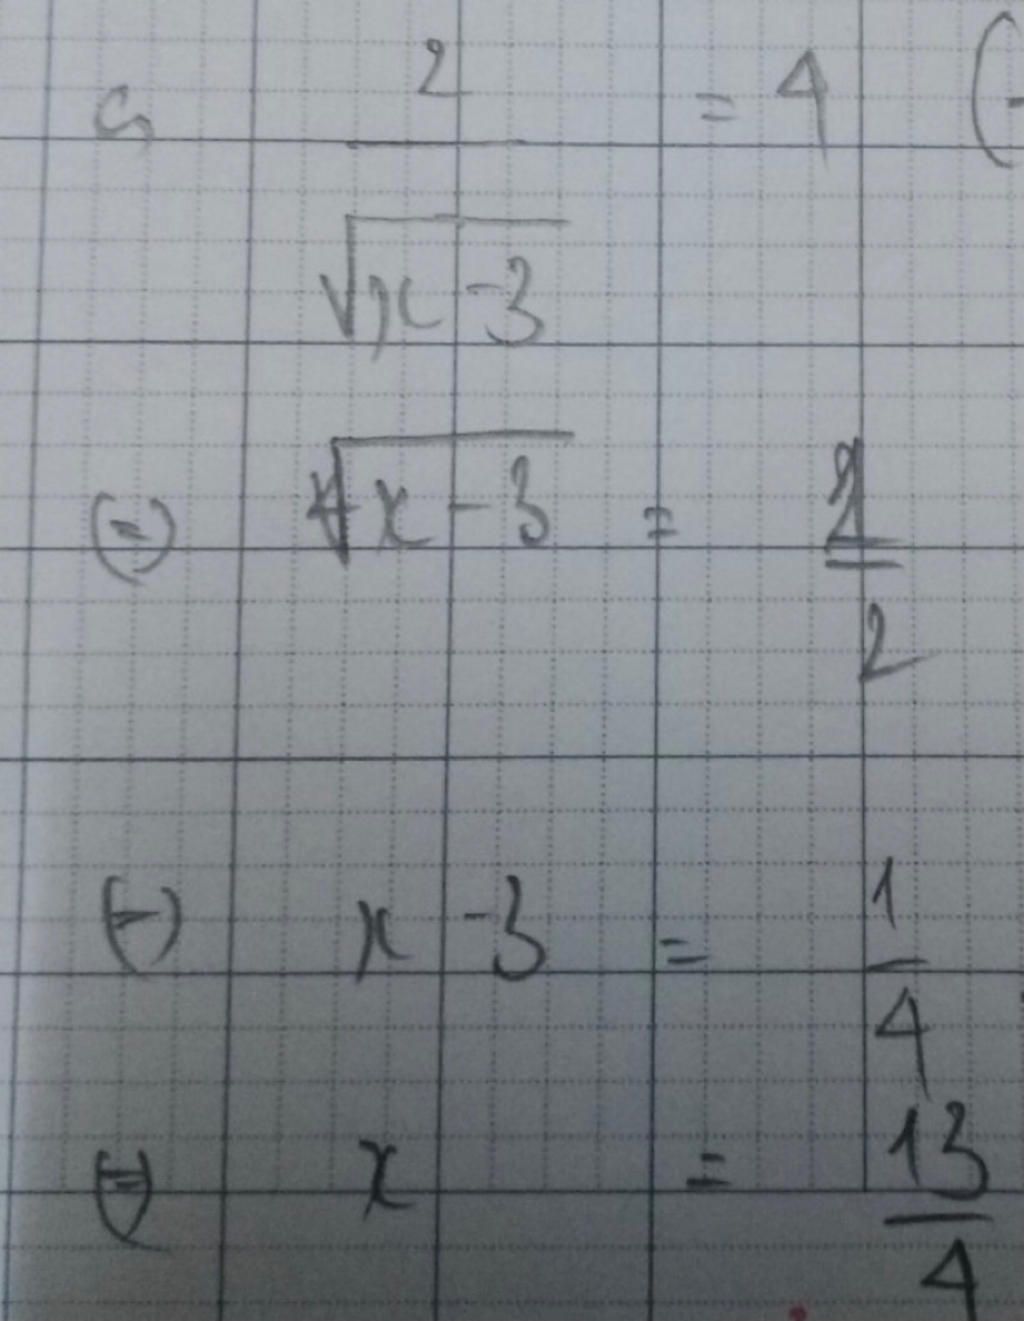 2/√(x-3) = 4 (-
(=) √(x-3) = 1/2
(=) x-3 = 1/4
(=) x = 13/4